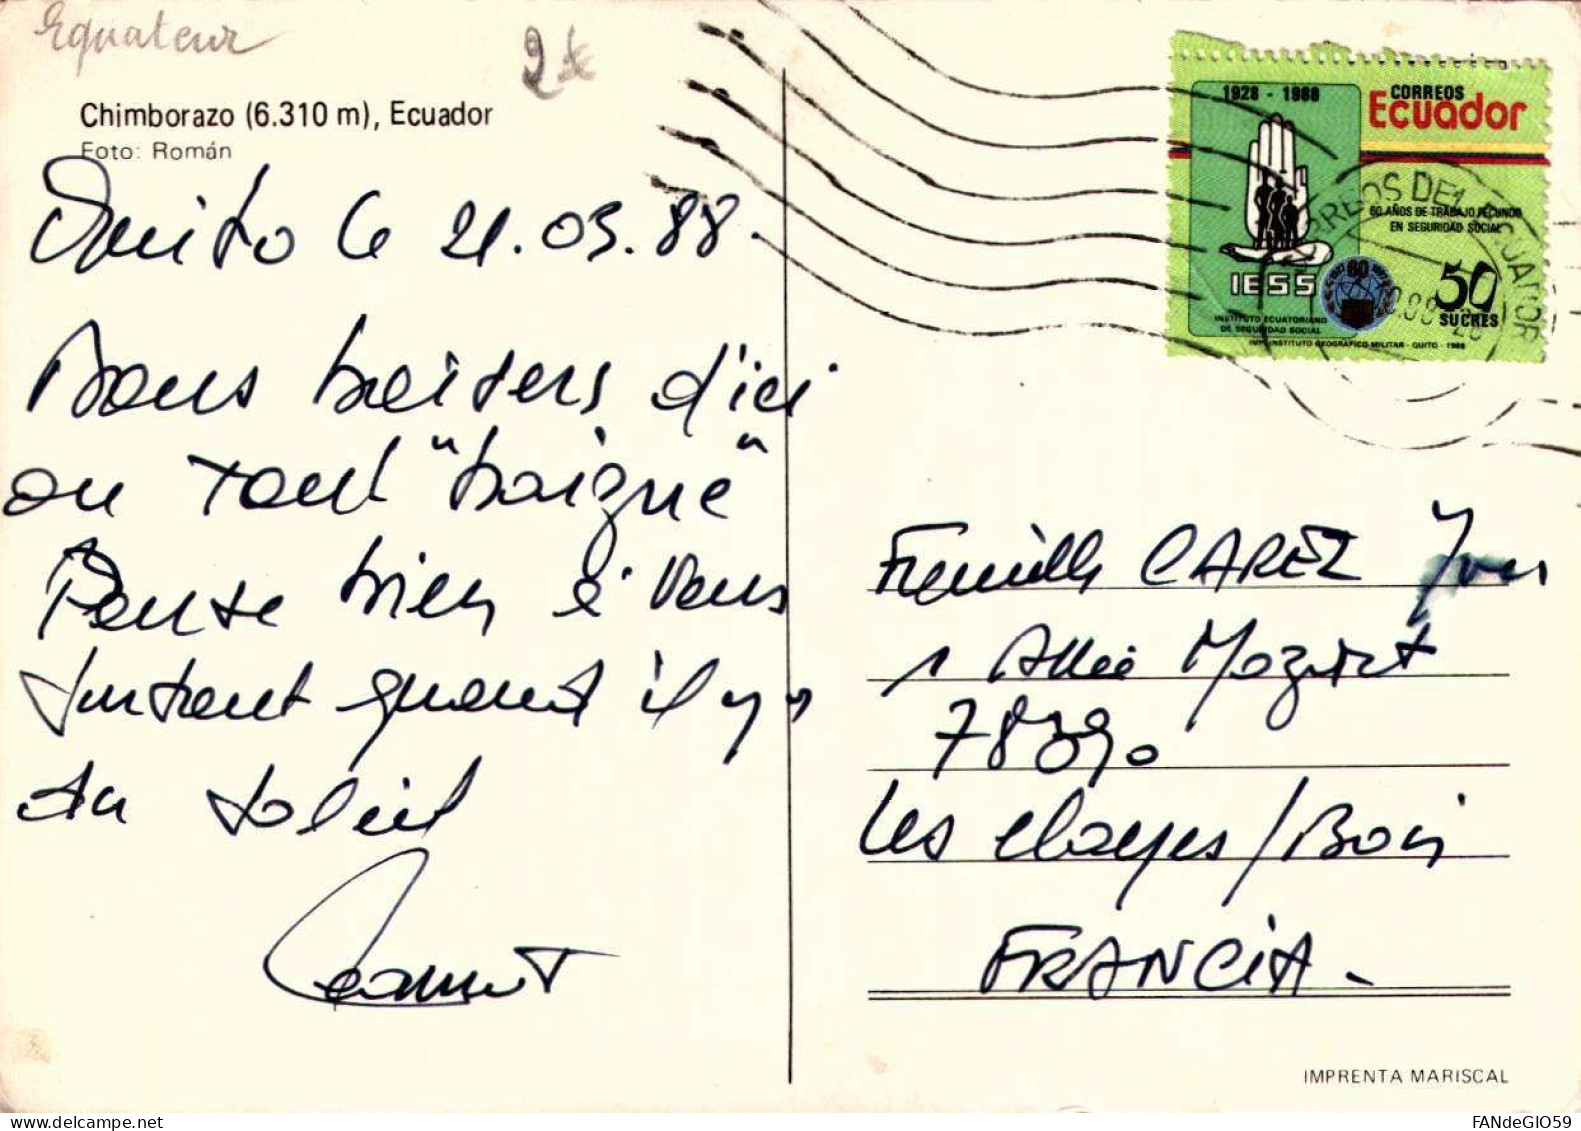 Equateur
2€
Chimborazo (6.310 m), Ecuador
Foto: Román
Quito le 21.03.88.
Bons baisers d'ici
ou tout "baigne"
Pense bien à vous
surtout quand il y a
du soleil
1928 - 1988
CORREOS
Ecuador
60 AÑOS DE TRABAJO FECUNDO
EN SEGURIDAD SOCIAL
IESS
60
50
SUCRES
INSTITUTO ECUATORIANO
DE SEGURIDAD SOCIAL
IMP. INSTITUTO GEOGRAFICO MILITAR - QUITO - 1988
Famille CAREZ Yvon
1 Allée Mozart
78390
Les Clayes/Bois
FRANCIA.
IMPRENTA MARISCAL
FANdeGIO59